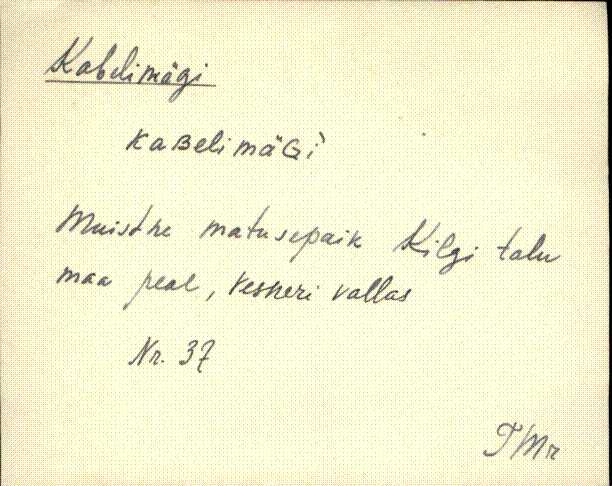 Kabelimägi
KaBelimäGi`
Muistne matusepaik Kilgi talu
maa peal, Veskeri vallas
Nr. 37
TMr